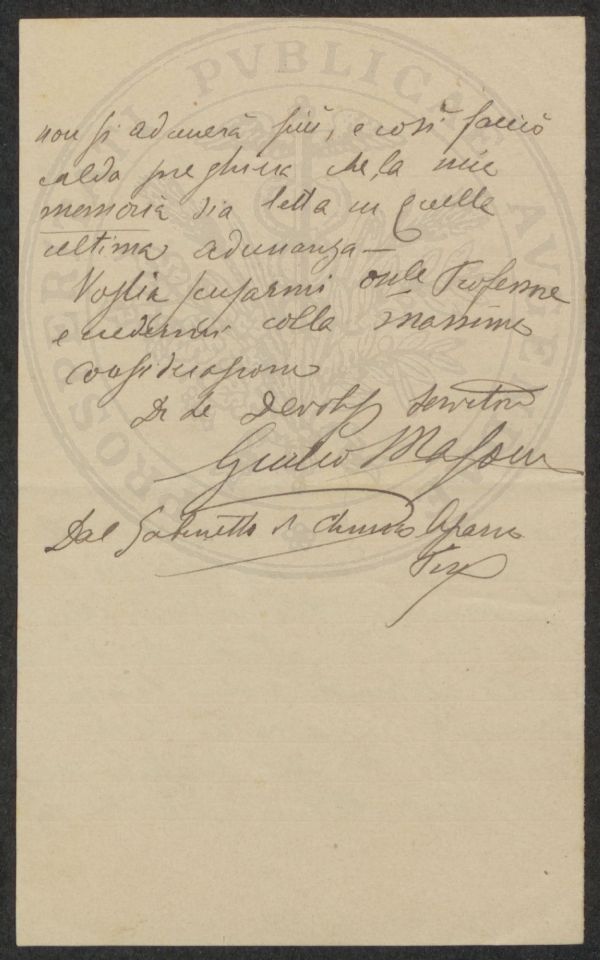 non si adunerà più, e così faccio
calda preghiera che la mia
memoria sia letta in quella
ultima adunanza —
Voglia scusarmi Professore
e credermi colla massima
considerazione
Di Lei Devotis Servitore
Giulio
Dal Gabinetto di Chimica Agraria
Pisa
PROSPERITATI PVBLICAE AVGE